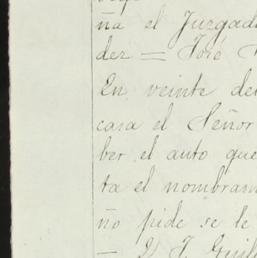 ña el Juzgad
dez = José
En veinte de
casa el Señor
ber el auto que
ta el nombram
ño pide se le